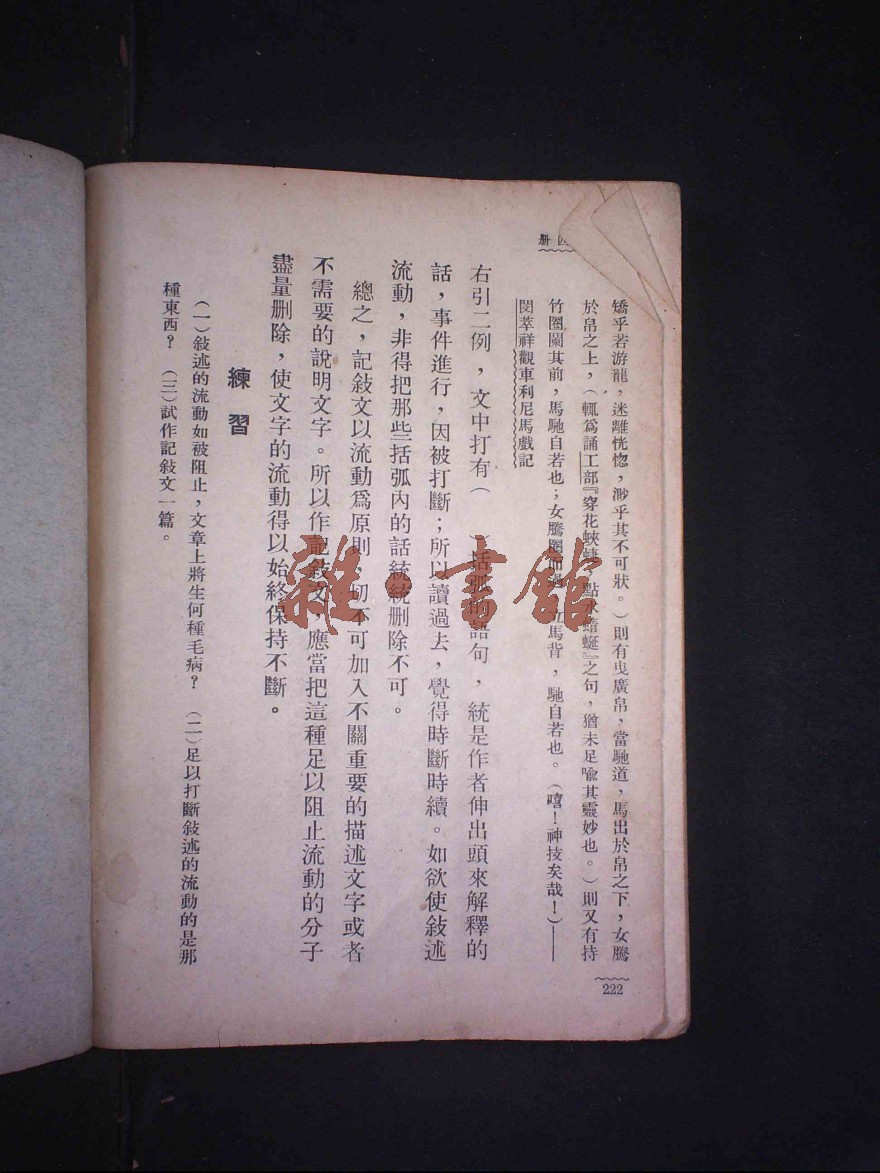 四册
矯乎若游龍，迷離恍惚，渺乎其不可狀。）則有曳廣帛，當馳道，馬出於帛之下，女騰
於帛之上，（輒爲誦工部『穿花蛺蝶，點水蜻蜓』之句，猶未足喻其靈妙也。）則又有持
竹圈闌其前，馬馳自若也；女騰圈而過，立馬背，馳自若也。（嘻！神技矣哉！）——
閔萃祥觀車利尼馬戲記
右引二例，文中打有（　）括弧的語句，統是作者伸出頭來解釋的
話，事件進行，因被打斷；所以讀過去，覺得時斷時續。如欲使敍述
流動，非得把那些括弧內的話統統删除不可。
總之，記敍文以流動爲原則，切不可加入不關重要的描述文字或者
不需要的說明文字。所以作記敍文，應當把這種足以阻止流動的分子
盡量删除，使文字的流動得以始終保持不斷。
練習
（一）敍述的流動如被阻止，文章上將生何種毛病？　（二）足以打斷敍述的流動的是那
種東西？　（三）試作記敍文一篇。
222
雜·書館